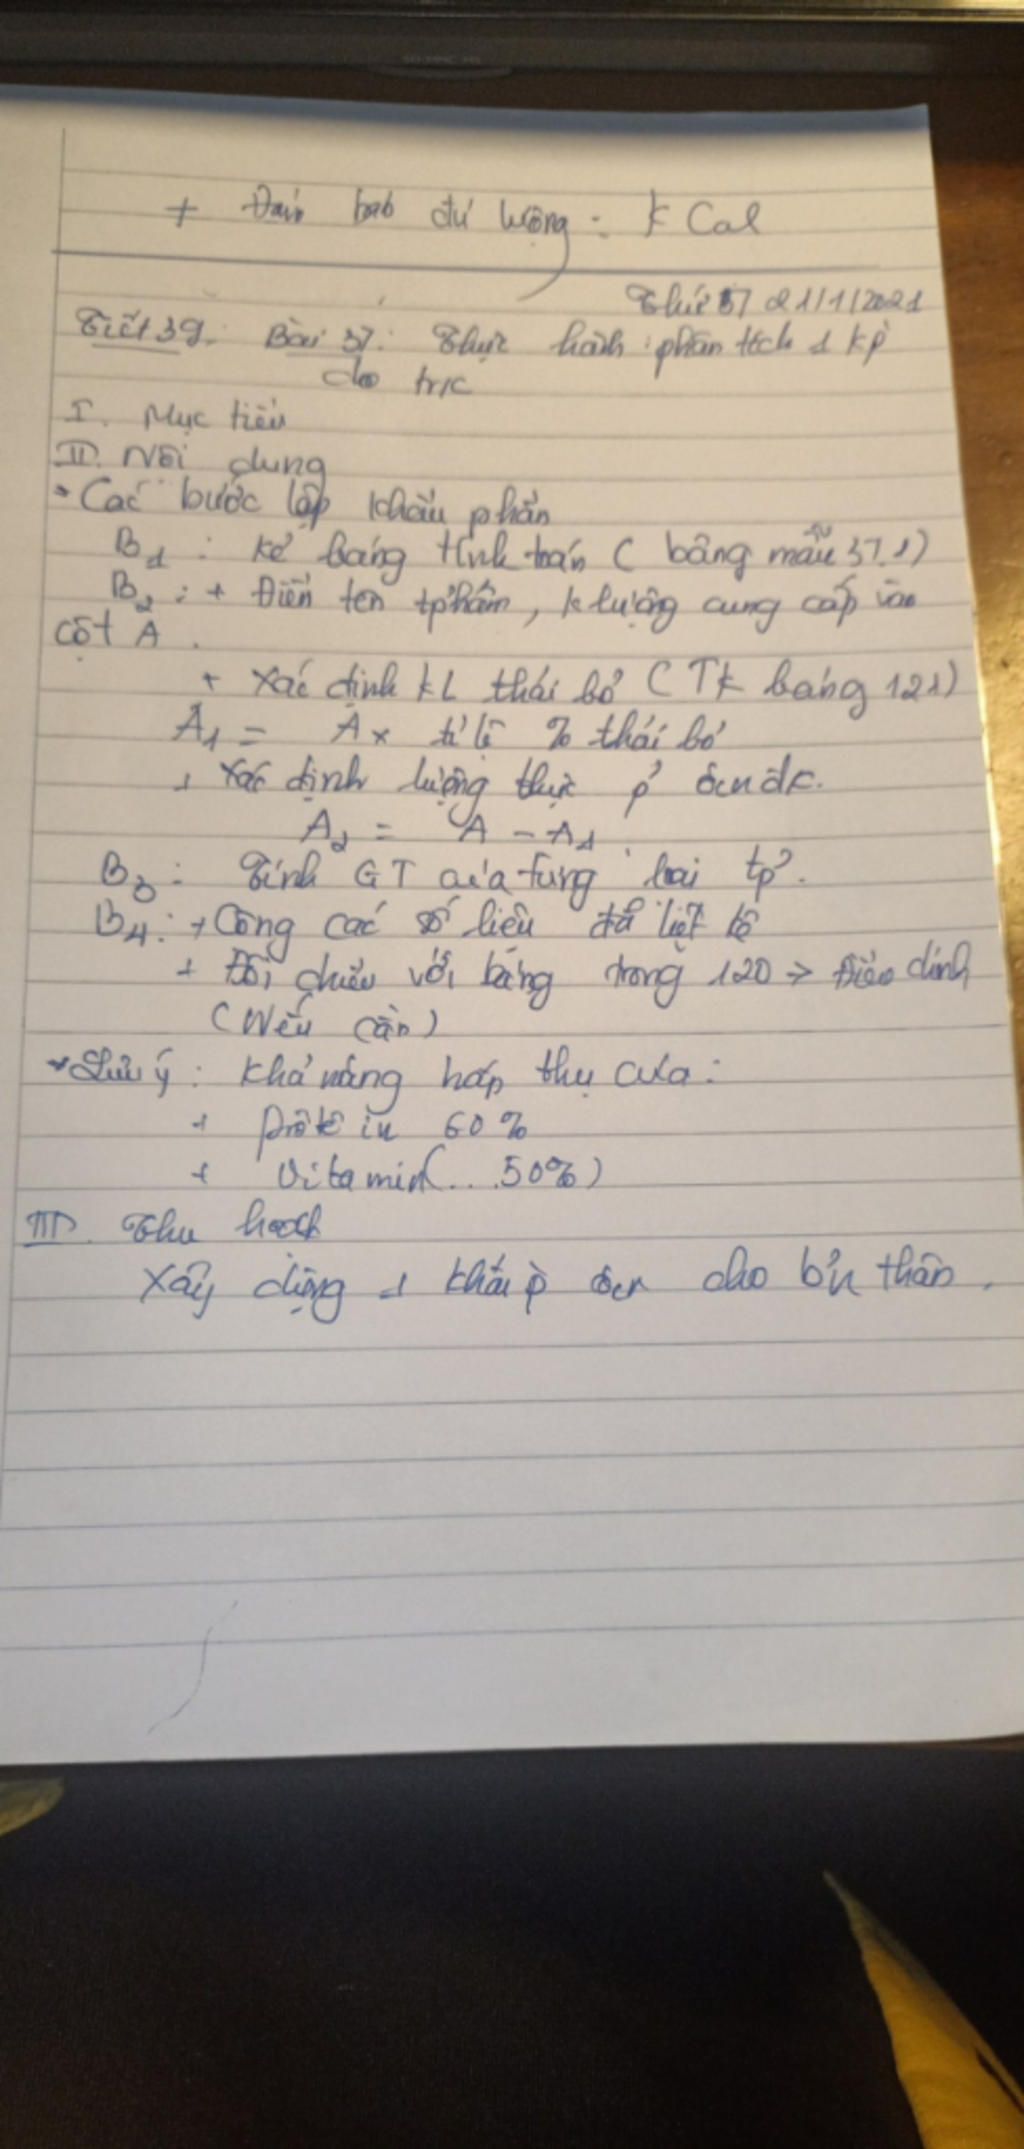 + Đảm bảo đủ lượng : k Cal
Thứ 5/ 21/1/2021
Tiết 39: Bài 37: Thực hành : phân tích 1 kp
cho trc
I. Mục tiêu
II. Nội dung
* Các bước lập khẩu phần
B1 : Kẻ bảng tính toán ( bảng mẫu 37.1)
B2 : + Điền tên tphẩm, k lượng cung cấp vào
cột A.
+ Xác định KL thải bỏ ( TK bảng 121)
A1 = A x tỉ lệ % thải bỏ
+ Xác định lượng thực p' ăn đc.
A2 = A - A1
B3 : Tính GT của từng loại tp'.
B4 : + Cộng các số liệu đã liệt kê
+ Đối chiếu với bảng trong 120 → Điều chỉnh
(Nếu cần)
* Lưu ý : Khả năng hấp thụ của :
+ prôtêin 60%
+ Vitamin(...50%)
III. Thu hoạch
Xây dựng 1 khẩu p ăn cho bản thân.